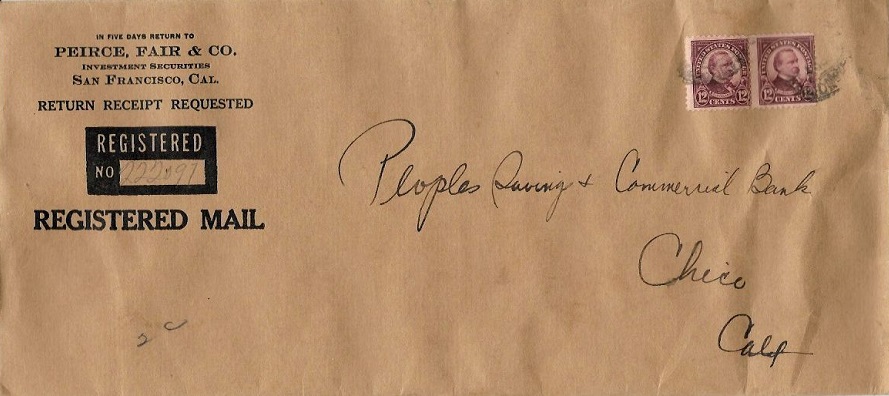 IN FIVE DAYS RETURN TO
PEIRCE, FAIR & CO.
INVESTMENT SECURITIES
SAN FRANCISCO, CAL.
RETURN RECEIPT REQUESTED
REGISTERED
NO
REGISTERED MAIL
Peoples Saving & Commercial Bank
Chico
Calif
UNITED STATES POSTAGE
12 CENTS 12
12 CENTS